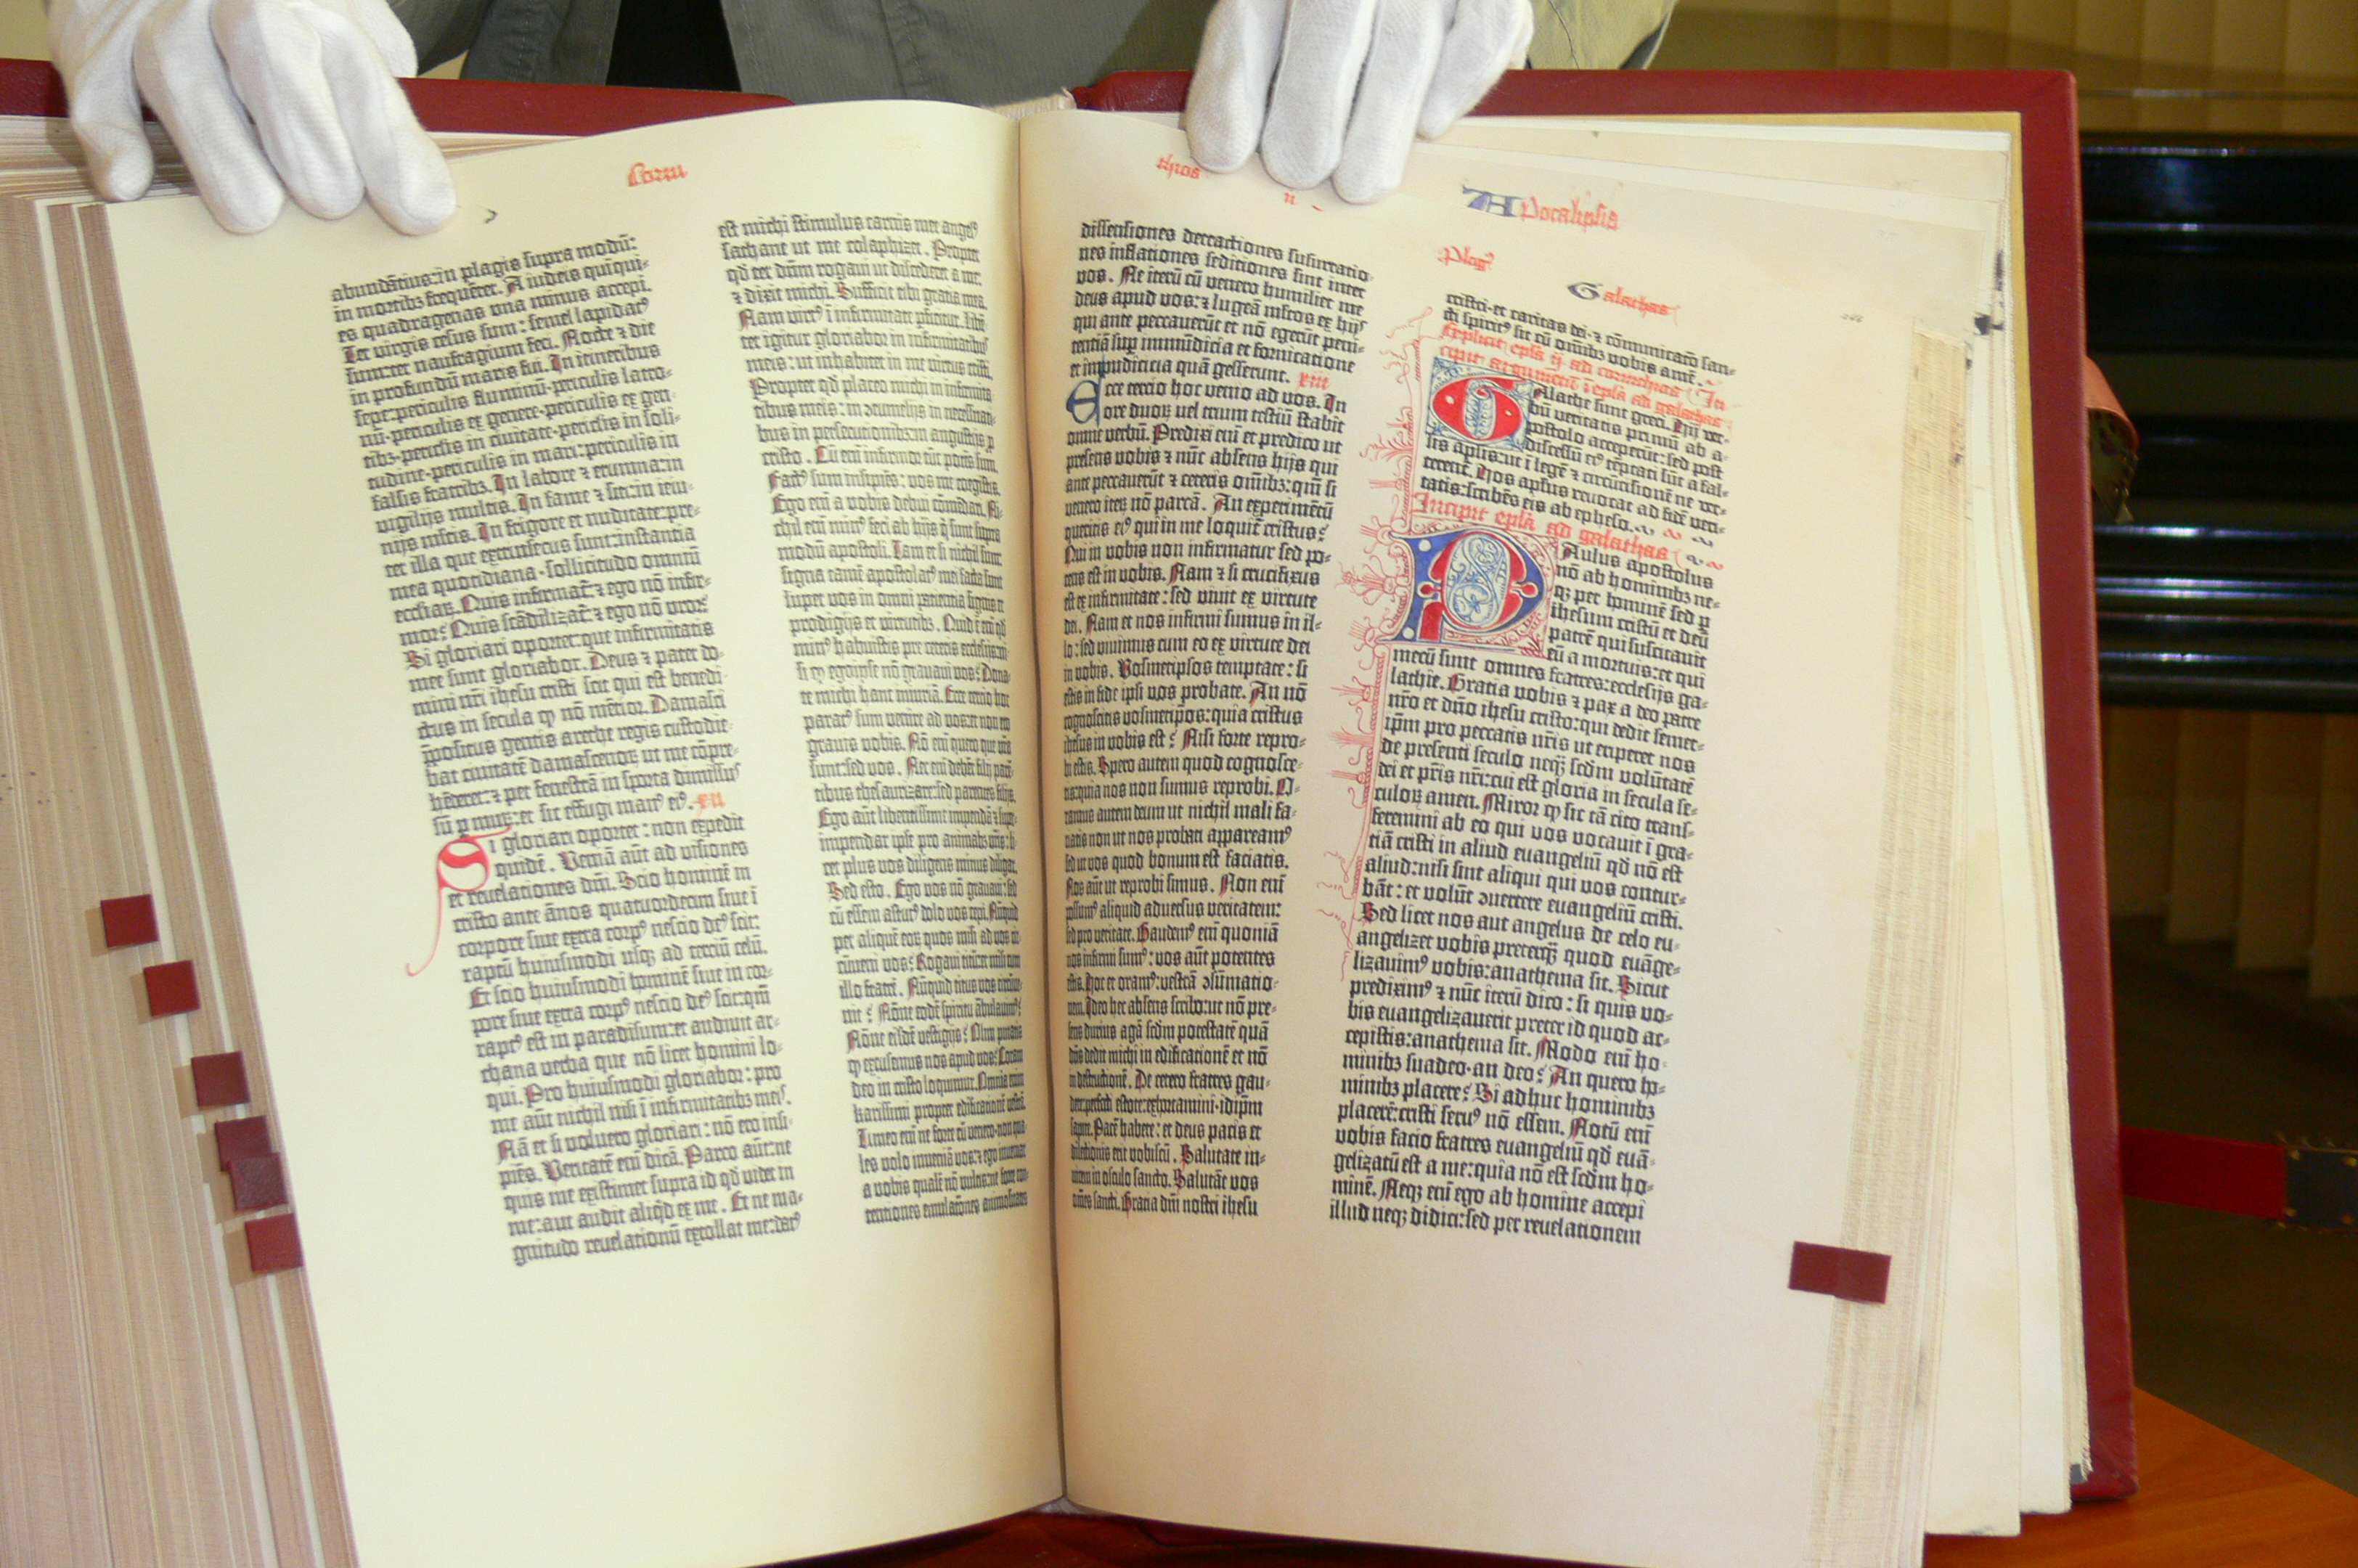 Corin
abundātius:in plagis supra modū:
in mortibz frequēter. A iudeis quīqui-
es quadragenas una minus accepi.
Ter virgis cesus sum: semel lapidatꝰ
sum:ter naufragium feci. Nocte ⁊ die
in profundū maris fui. In itineribus
sepe:periculis fluminū·periculis latro-
nū·periculis ex genere·periculis ex gen-
tibz·periclis in civitate·periclis in soli-
tudine·periculis in mari:periculis in
falsis fratribz. In labore ⁊ erumna:in
vigilijs multis. In fame ⁊ siti:in ieiu-
nijs mltis. In frigore et nuditate:pre-
ter illa que extrinsecus sunt:instantia
mea quotidiana·sollicitudo omniū
ecclīaꝝ. Quis infirmat̄:⁊ ego nō infir-
mor? Quis scādilizat̄:⁊ ego nō uror?
Si gloriari oportet:que infirmitatis
mee sunt gloriabor. Deus ⁊ pater do-
mini nr̄i ihesu cristi scit qui est benedi-
ctus in secula ꝙ nō mētior. Damasci
p̄positus gentis arethe regis custodie-
bat civitatē damascenoꝝ ut me cōpre-
hēderet:⁊ per fenestrā in sporta dimissus
sū ꝑ muꝝ:et sic effugi manꝰ eiꝰ. xii
Si gloriari oportet: non expedit
quidē. Veniā aūt ad visiones
et revelationes dn̄i. Scio hominē in
cristo ante ānos quatuordecim sive ī
corpore sive extra corpꝰ nescio deꝰ scit:
raptū huiusmodi usqꝫ ad terciū celū.
Et scio huiusmodi hominē sive in cor-
pore sive extra corpꝰ nescio deꝰ scit:qm̄
raptꝰ est in paradisum:et audivit ar-
chana verba que nō licet homini lo-
qui. Pro huiusmodi gloriabor: pro
me aūt nichil nisi ī infirmitatibz meiſ.
Nā et si voluero gloriari: nō ero insi-
piēs. Veritatē eni dicā. Parco aūt:ne
quis me existimet supra id qd̄ videt in
me:aut audit aliqd̄ ex me. Et ne ma-
gnitudo revelationū extollat me:datꝰ
est michi stimulus carnis mee angelꝰ
sathane ut me colaphizet. Propter
qd̄ ter dūm rogavi ut discederet a me:
⁊ dixit michi. Sufficit tibi gratia mea.
Nam virtꝰ ī infirmitate pficitur. Libē-
ter igitur gloriabor in infirmitatibꝰ
meis: ut inhabitet in me virtus cristi.
Propter qd̄ placeo michi in infirmita-
tibus meis: in ꝯtumelijs in necessitati-
bus in persecutionibz:in angustijs ꝑ
cristo. Cū eni infirmor tūc potēs sum.
Factꝰ sum insipiēs: vos me coegistis.
Ego eni a vobis debui cōmēdari. Ni-
chil eni minꝰ feci ab hijs q̄ sunt supra
modū apostoli. Tam et si nichil sum:
signa tamē apostolatꝰ mei facta sunt
super vos in omni patientia signis et
prodigijs et virtutibz. Quid ē eni qd̄
minꝰ habuistis pre ceteris ecclesijs:ni-
si ꝙ egoipse nō gravavi vos? Dona-
te michi hanc iniuriā. Ecce tercio hoc
paratꝰ sum venire ad vos:et non ero
gravis vobis. Nō eni quero que vr̄a
sunt:sed vos. Nec eni debēt filij parē-
tibus thesaurizare:sed parentes filijs.
Ego aūt libentissime impendā:⁊ supe-
impendar ipse pro animabz vr̄is: li-
cet plus vos diligens minus diligar.
Sed esto. Ego vos nō gravavi: sed
cū essem astutꝰ dolo vos cepi. Nūquid
per aliquē eoꝝ quos misi ad vos cir-
cūveni vos? Rogavi titū:et misi cum
illo fratrē. Nūquid titus vos circūve-
nit? Nōne eodē spiritu ābulavimꝰ?
Nōne eisdē vestigijs? Olim putatis
ꝙ excusemus nos apud vos? Coram
deo in cristo loquimur. Omnia enim
karissimi propter edificationē vestrā.
Timeo eni ne forte cū venero·non qua-
les volo inveniā vos:⁊ ego inveniar
a vobis qualē nō vultis:ne forte con-
tentiones emulatōnes animositates
thios
ii
dissensiones detractiones susurratio-
nes inflationes seditiones sint inter
vos. Ne iterū cū venero humiliet me
deus apud vos:⁊ lugeā mltos ex hijſ
qui ante peccaverūt et nō egerūt peni-
tentiā suꝑ immūdicia et fornicatione
et impudicicia quā gesserunt. xiii
Ecce tercio hoc venio ad vos. In
ore duoꝝ vel trium testiū stabit
omne verbū. Predixi eni et predico ut
presens vobis ⁊ nūc absens hijs qui
ante peccaverūt ⁊ ceteris omībz: qm̄ si
venero iteꝝ nō parcā. An experimētū
queritis eiꝰ qui in me loquit̄ cristus?
Qui in vobis non infirmatur sed po-
tens est in vobis. Nam ⁊ si crucifixus
est ex infirmitate: sed vivit ex virtute
dei. Nam et nos infirmi sumus in il-
lo: sed vivimus cum eo ex virtute dei
in vobis. Vosmetipsos temptate: si
estis in fide ipsi vos probate. An nō
cognoscitis vosmetipōs: quia cristus
ihesus in vobis est? Nisi forte repro-
bi estis. Spero autem quod cognosce-
tis:quia nos non sumus reprobi. O-
ramus autem deum ut nichil mali fa-
tiatis non ut nos probati appareamꝰ
sed ut vos quod bonum est faciatis.
Nos aūt ut reprobi simus. Non eni
possumꝰ aliquid adversus veritatem:
sed pro veritate. Gaudemꝰ eni quoniā
nos infirmi sumꝰ: vos aūt potentes
estis. Hoc et oramꝰ: vestrā ꝯsūmatio-
nem. Ideo hec absens scribo:ut nō pre-
sens durius agā scdm potestatē quā
dn̄s dedit michi in edificationē et nō
in destructionē. De cetero fratres gau-
dete:perfecti estote:exhortamini·idip̄m
sapite. Pacē habete: et deus pacis et
dilectionis erit vobiscū. Salutate in-
vicem in osculo sancto. Salutāt vos
om̄es sancti. Gratia dn̄i nostri ihesu
Apocalipsis
Plog'
Galathas
cristi·et caritas dei·⁊ cōmunicatō san-
cti spiritꝰ sit cū omībz vobis amē.
Explicit epl̄a ij ad corinthios. In-
cipit argumentū ī epl̄a ad galathas
Galathe sunt greci. Hij ver-
bū veritatis primū ab a-
postolo acceperūt: sed post
discessū eiꝰ tēptati sūt a fal-
sis aplis:ut ī legē ⁊ circūcisionē ne ver-
terent. Hos aplus revocat ad fidē veri-
tatis:scribēs eis ab epheso.
Incipit epl̄a ad galathas
Paulus apostolus
nō ab hominibz ne-
qꝫ per hominē sed ꝑ
ihesum cristū et deū
patrē qui suscitavit
eū a mortuis:et qui
mecū sunt omnes fratres:ecclesijs ga-
lathie. Gratia vobis ⁊ pax a deo patre
nr̄o et dn̄o ihesu cristo:qui dedit semet-
ip̄m pro peccatis nr̄is ut eriperet nos
de presenti seculo neqꝫ scdm volūtatē
dei et pr̄is nr̄i:cui est gloria in secula se-
culoꝝ amen. Miror ꝙ sic tā cito trans-
feremini ab eo qui vos vocavit ī gra-
tiā cristi in aliud evangeliū qd̄ nō est
aliud:nisi sint aliqui qui vos contur-
bāt: et volūt ꝯvertere evangeliū cristi.
Sed licet nos aut angelus de celo eu-
angelizet vobis preterqꝫ quod evāge-
lizavimꝰ vobis:anathema sit. Sicut
prediximꝰ ⁊ nūc iterū dico: si quis vo-
bis evangelizaverit preter id quod ac-
cepistis:anathema sit. Modo eni ho-
minibz suadeo·an deo? An quero ho-
minibz placere? Si adhuc hominibz
placerē:cristi servꝰ nō essem. Notū eni
vobis facio fratres evangeliū qd̄ evā-
gelizatū est a me:quia nō est scdm ho-
minē. Neqꝫ eni ego ab homine accepi
illud neqꝫ didici:sed per revelationem